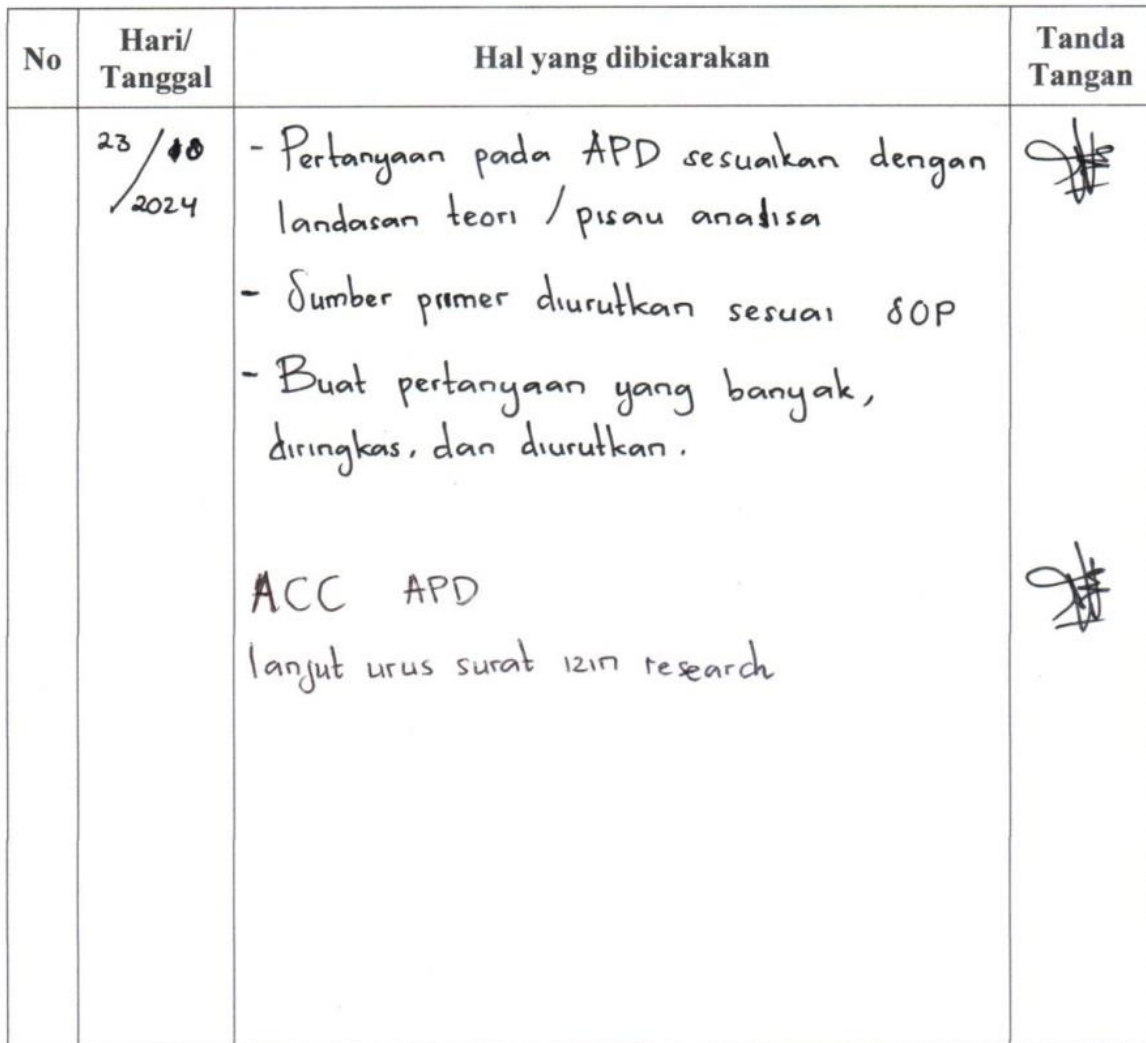 No
Hari/
Tanggal
Hal yang dibicarakan
Tanda
Tangan
23/10
2024
- Pertanyaan pada APD sesuaikan dengan
landasan teori / pisau analisa
- Sumber primer diurutkan sesuai SOP
- Buat pertanyaan yang banyak,
diringkas, dan diurutkan.
ACC APD
lanjut urus surat izin research